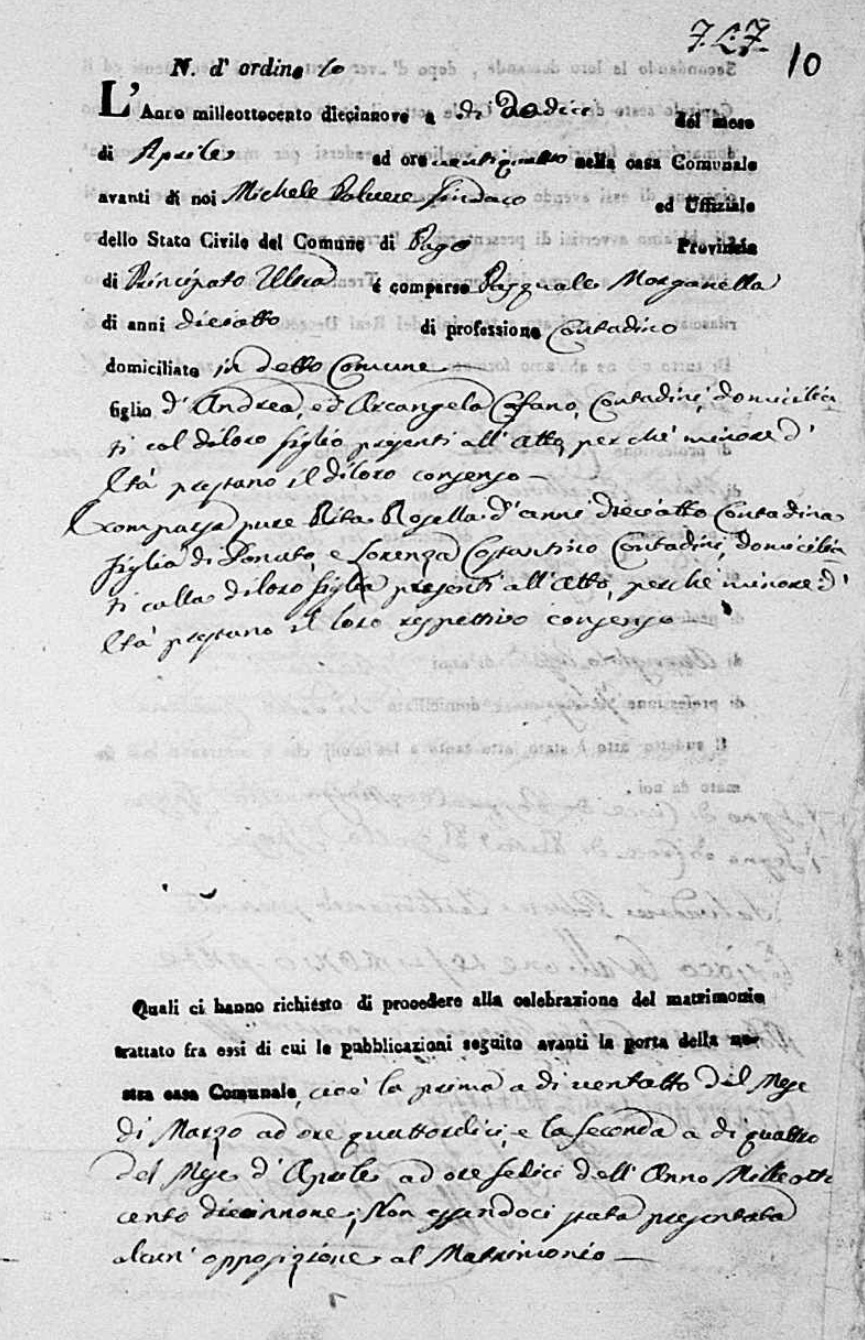 727
10
N. d' ordine 10
L'Anno milleottocento diecinnove a di Dodici del mese
di Aprile ad ore ventiquattro nella casa Comunale
avanti di noi Michele Polvere Sindaco ed Uffiziale
dello Stato Civile del Comune di Pago Provincia
di Principato Ultra é comparso Pasquale Morganella
di anni dieciotto di professione Contadino
domiciliato in detto Comune
figlio d' Andrea, ed Arcangela Cofano, Contadini, domicilia
ti col diloro figlio presenti all' Atto, perche minore d'
Età prestano il diloro consenso
E comparsa pure Rita Rosella d' anni dieciotto Contadina
figlia di Donato, e Lorenza Costantino Contadini, domicilia
ti colla diloro figlia presenti all' Atto, perche minore d'
Età prestano il loro respettivo consenso
Quali ci hanno richiesto di procedere alla celebrazione del matrimonio
trattato fra essi di cui le pubblicazioni seguite avanti la porta della no-
stra casa Comunale, cioè la prima a di ventotto del Mese
di Marzo ad ore quattordici, e la seconda a di quattro
del Mese d' Aprile ad ore sedici dell' Anno Milleotto
cento diecinnove; Non essendoci stata presentata
alcun' opposizione al Matrimonio